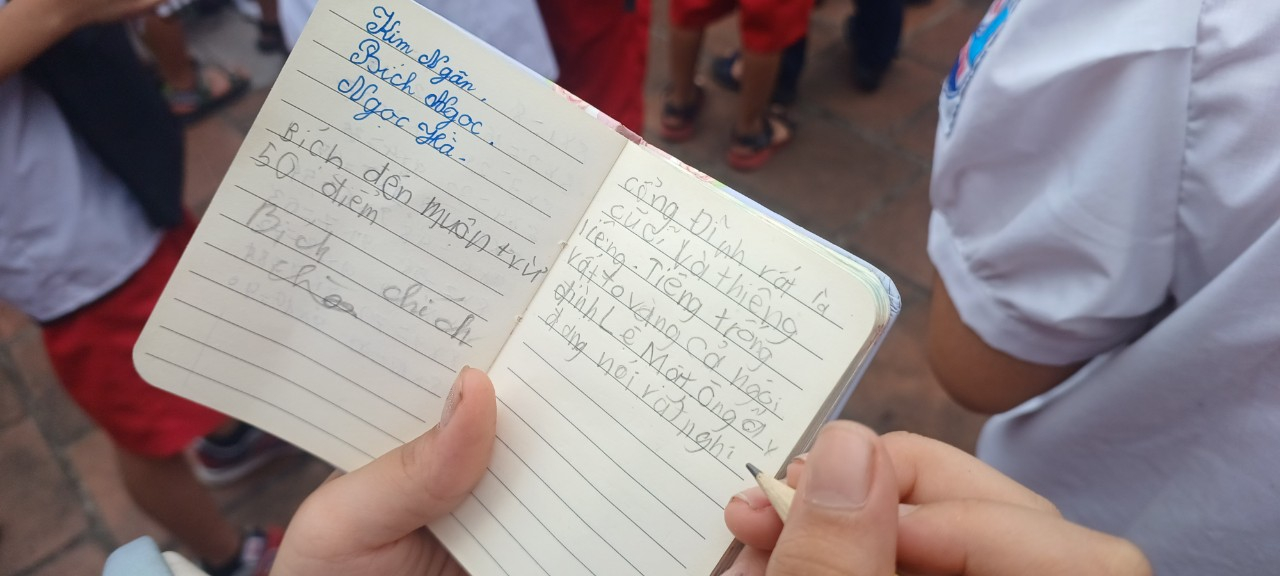 Kim Ngân.
Bích Ngọc.
Ngọc Hà.
Bích đến muộn trừ
50 điểm
Bích chích
cổng Đình rất là
cũ. Và thiêng
liêng. Tiếng trống
rất to vang cả ngôi
đình Lê Mật Ông ấy
đang nói rất nghi